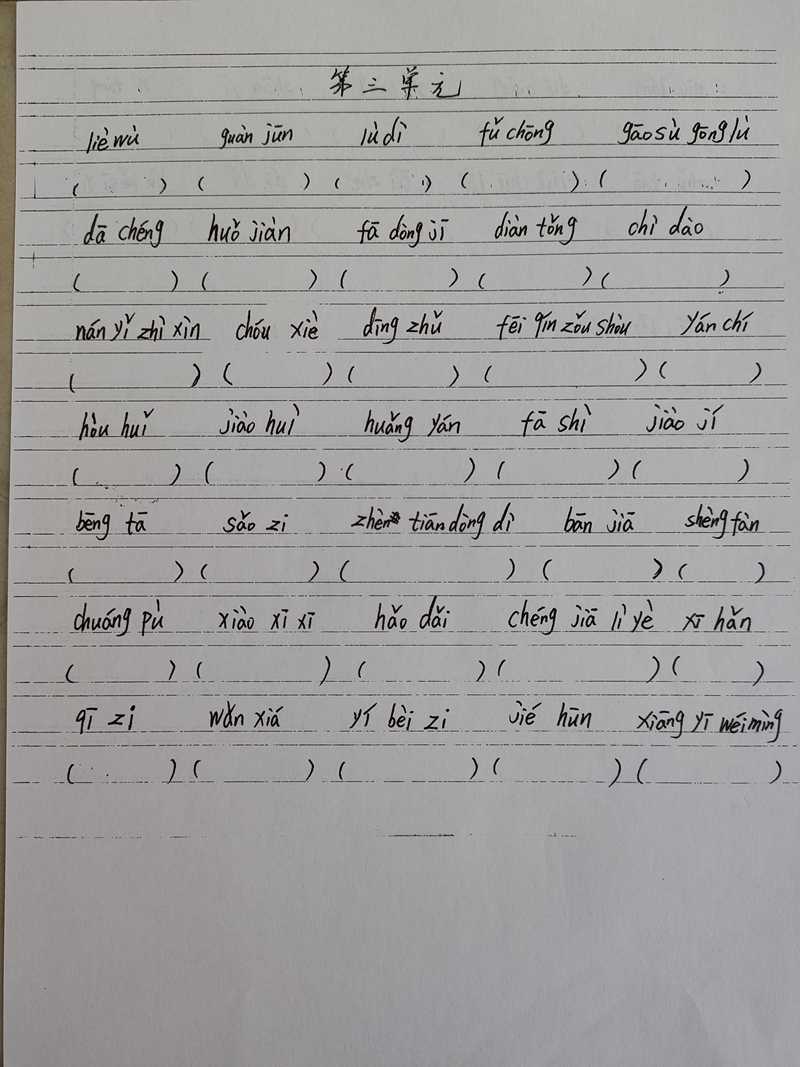 第三单元
liè wù guàn jūn lù dì fǔ chōng gāo sù gōng lù
( ) ( ) ( ) ( ) ( )
dā chéng huǒ jiàn fā dòng jī diàn tǒng chí dào
( ) ( ) ( ) ( ) ( )
nán yǐ zhì xìn chóu xiè dīng zhǔ fēi qín zǒu shòu yán chí
( ) ( ) ( ) ( ) ( )
hòu huǐ jiào huì huǎng yán fā shì jiào jí
( ) ( ) ( ) ( ) ( )
bēng tā sǎo zi zhèn tiān dòng dì bān jiā shèng fàn
( ) ( ) ( ) ( ) ( )
chuáng pù xiào xī xī hǎo dǎi chéng jiā lì yè xī hǎn
( ) ( ) ( ) ( ) ( )
qī zi wǎn xiá yí bèi zi jié hūn xiāng yī wéi mìng
( ) ( ) ( ) ( ) ( )